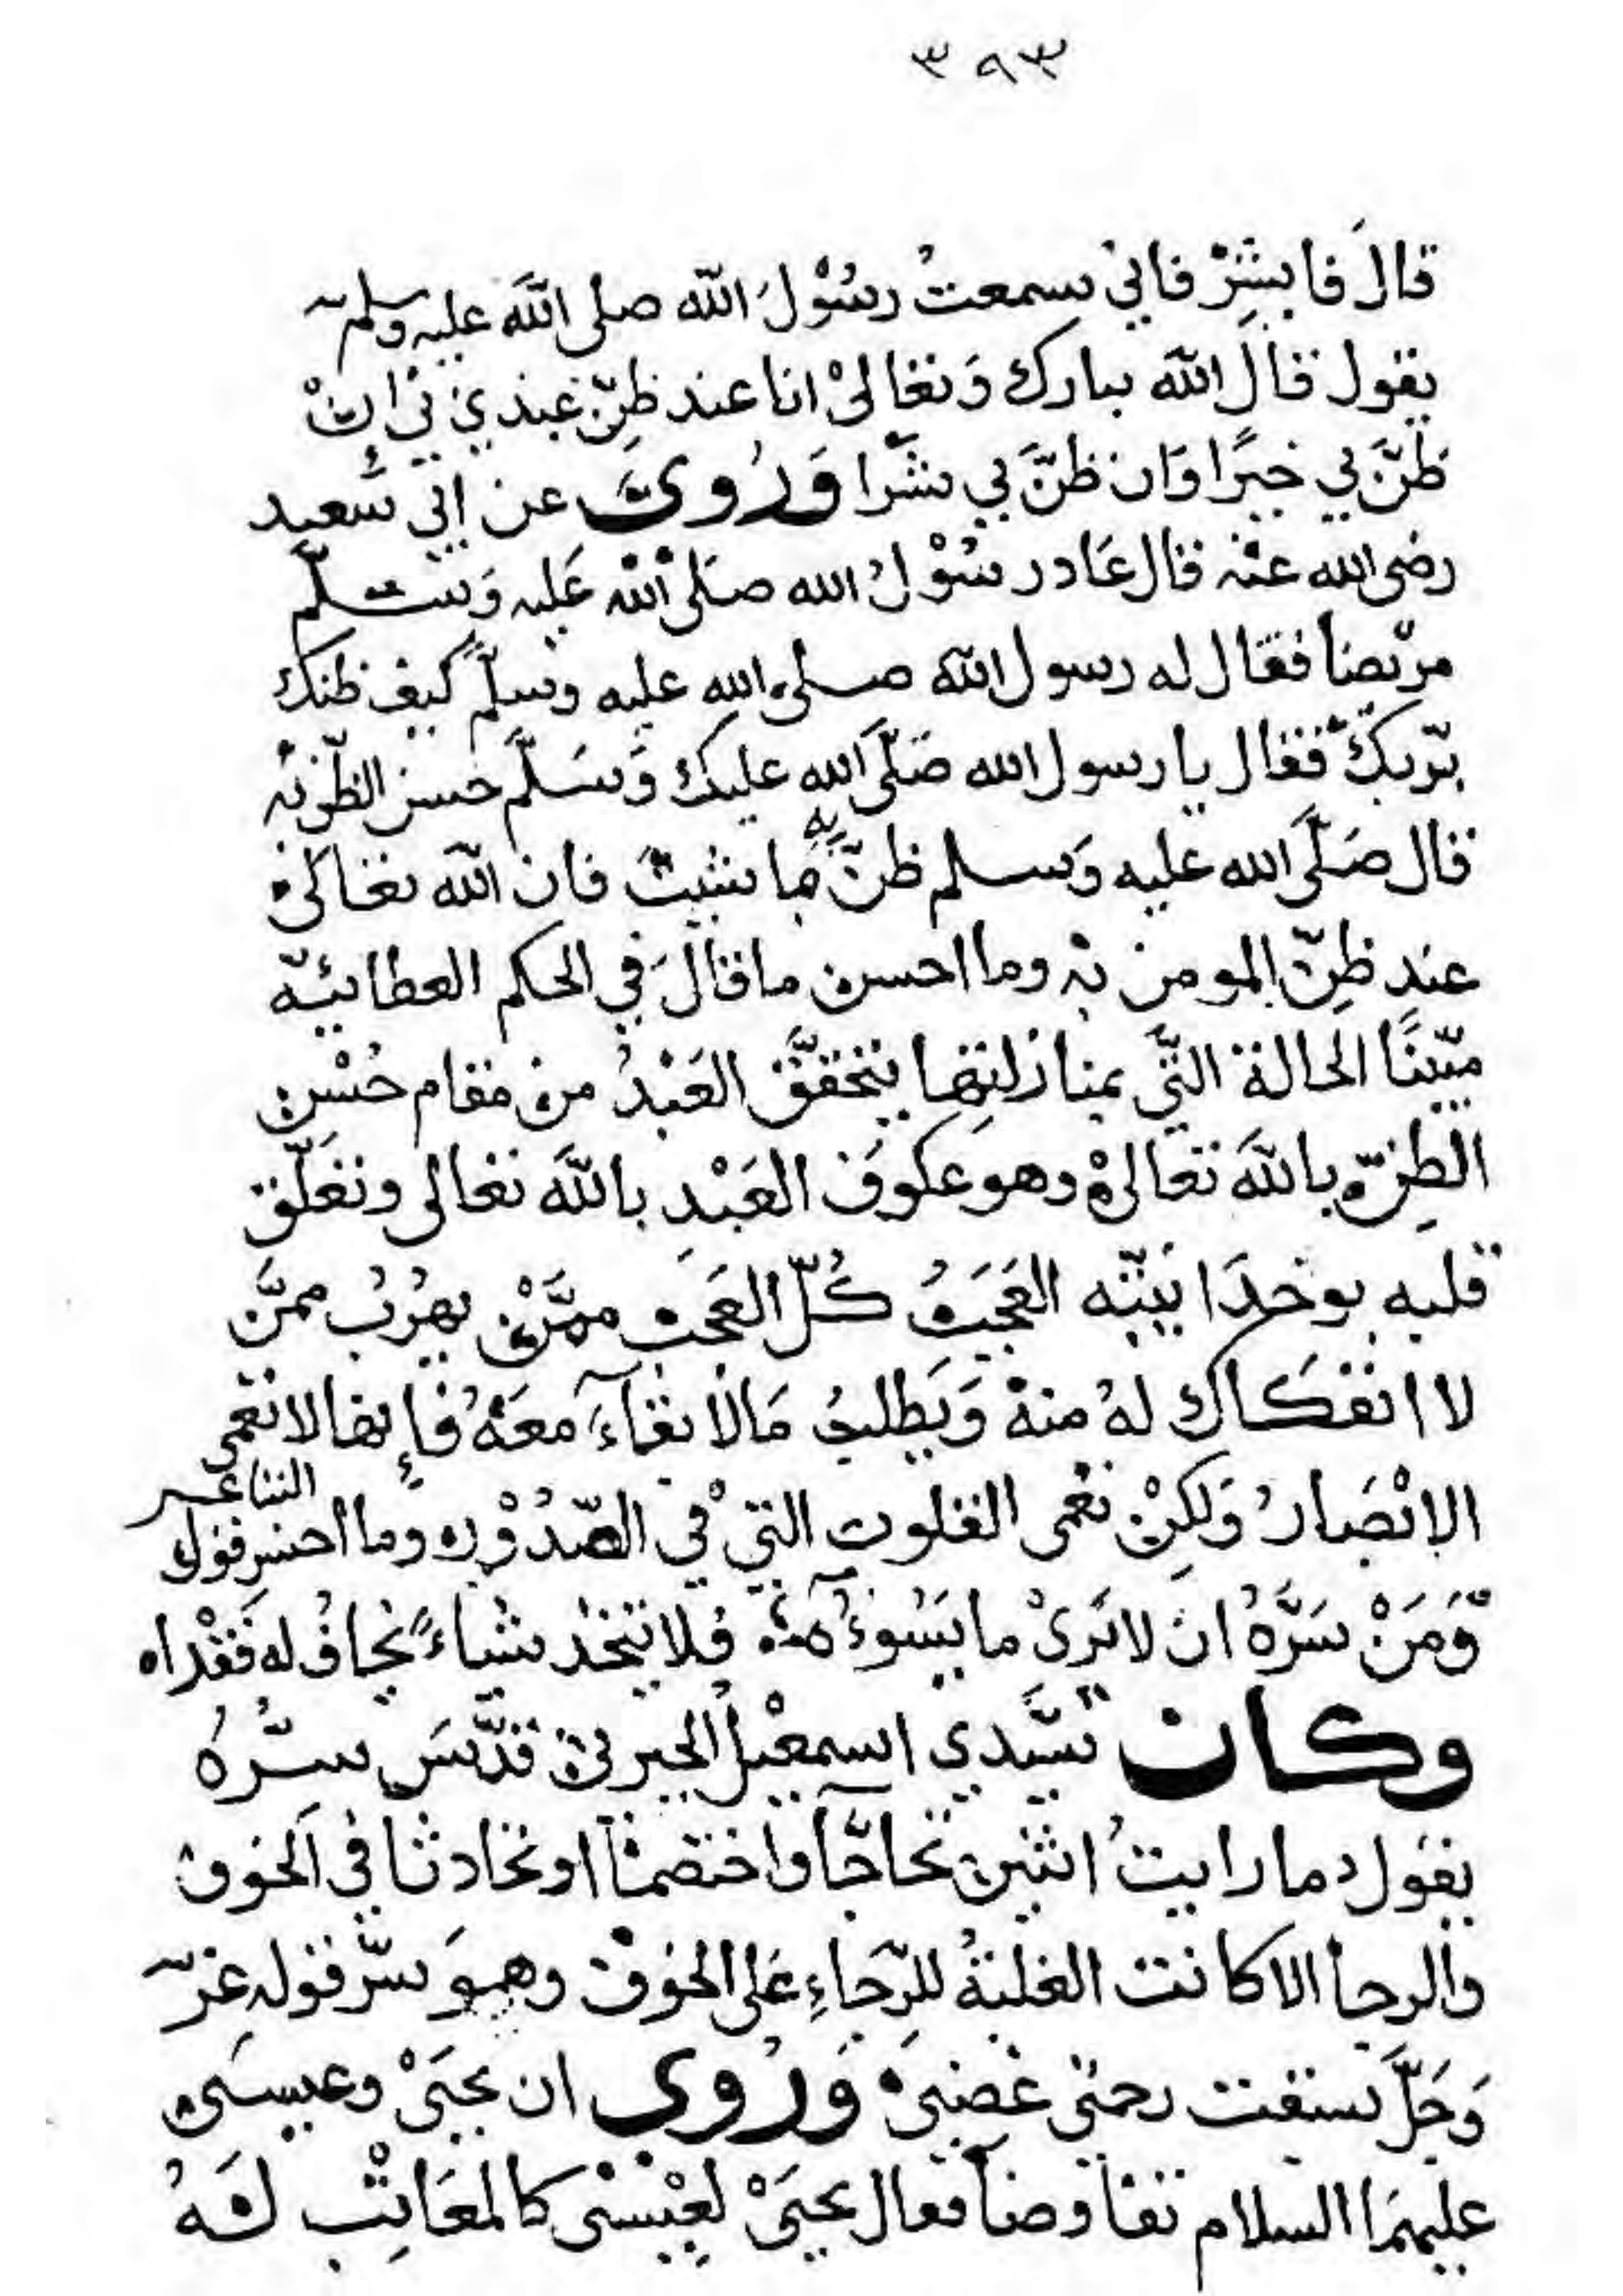 ٣٩٣
قالَ فابشِرْ فاني سمعتُ رسُوْلَ اللّه صلى اللّهَ عليه وسلم
يقول قالَ اللّه تبارك وَتعالىْ انا عند ظنّ عبدي بي إنْ
ظنَّ بي خيرًا وَان ظنَّ بي شرّا وَرُويَ عن ابي سَعيد
رضى الله عنْه قال عَاد رسُوْلُ الله صلى اللّه عَليه وَسلّم
مريضاً فقال له رسول اللّه صلى الله عليه وسلّم كيف ظنك
بربّك فقال يا رسول الله صَلّىَ الله عليك وَسَلّم حسن الظّن به
قال صَلّىَ الله عليه وَسلم ظنّ به ما شيتَ فان اللّه تعالىْ
عند ظِنّ المومن به وما احسن ما قالَ في الحكم العطائيّه
مبّينًا الحالة التّي بمنازلتها يتحققَّ العَبْدُ من مقام حُسْن
الظِنّ باللّه تعالىْ وهو عكوفَ العَبْدِ باللّه تعالى وتعَلّق
قلبه بوحدَانيّته العَجَبُ كُلّ العَجَب ممَّنْ يهرُبُ ممَّن
لا انفكاك لهُ منهْ وَيَطلبُ مَالاَ بقآءَ معَهُ فإنها لا تعمى
الابْصَارُ وَلكِنْ تعْمى القلوب التيْ في الصّدُوْر وما احسن قول الشاعر
وَمَنْ سَرَّهُ ان لا يَرىْ ما يَسُوءُهُ فلا يتخذ شياءً يخافُ له فَقْداه
وكان سَيّدي اسمعيْلُ الجبرتي قدّسَ سرّهُ
يقول ما رايتُ اثنين تحاجّآ واختصمآ او تحادثا في الخوف
والرجآ الا كانت الغلبةُ للرّجاءِ عَلى الخوْف وهوَ سرّ قوله عزّ
وَجَلَّ سبقت رحمتي غضبيْ وَرُوي ان يحيَىْ وعيسىْ
عليهمَا السلام تفاوضآ فقال يحيَىْ لعِيْسْى كالمعَاتِب لَهُ